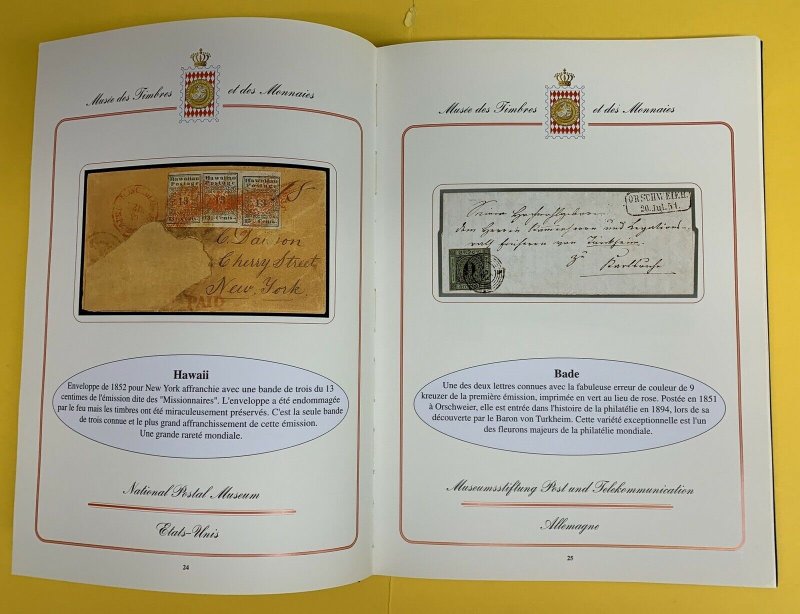 Musée des Timbres et des Monnaies
Hawaiian Postage Hawaiian Postage Hawaiian Postage
13 13 13
C. Dawson
Cherry Street
New York.
PAID
Hawaii
Enveloppe de 1852 pour New York affranchie avec une bande de trois du 13
centimes de l'émission dite des "Missionnaires". L'enveloppe a été endommagée
par le feu mais les timbres ont été miraculeusement préservés. C'est la seule bande
de trois connue et le plus grand affranchissement de cette émission.
Une grande rareté mondiale.
National Postal Museum
Etats-Unis
24
Musée des Timbres et des Monnaies
ORSCHWEIER
20. Jul. 51.
9
Bade
Une des deux lettres connues avec la fabuleuse erreur de couleur de 9
kreuzer de la première émission, imprimée en vert au lieu de rose. Postée en 1851
à Orschweier, elle est entrée dans l'histoire de la philatélie en 1894, lors de sa
découverte par le Baron von Turkheim. Cette variété exceptionnelle est l'un
des fleurons majeurs de la philatélie mondiale.
Museumsstiftung Post und Telekommunication
Allemagne
25